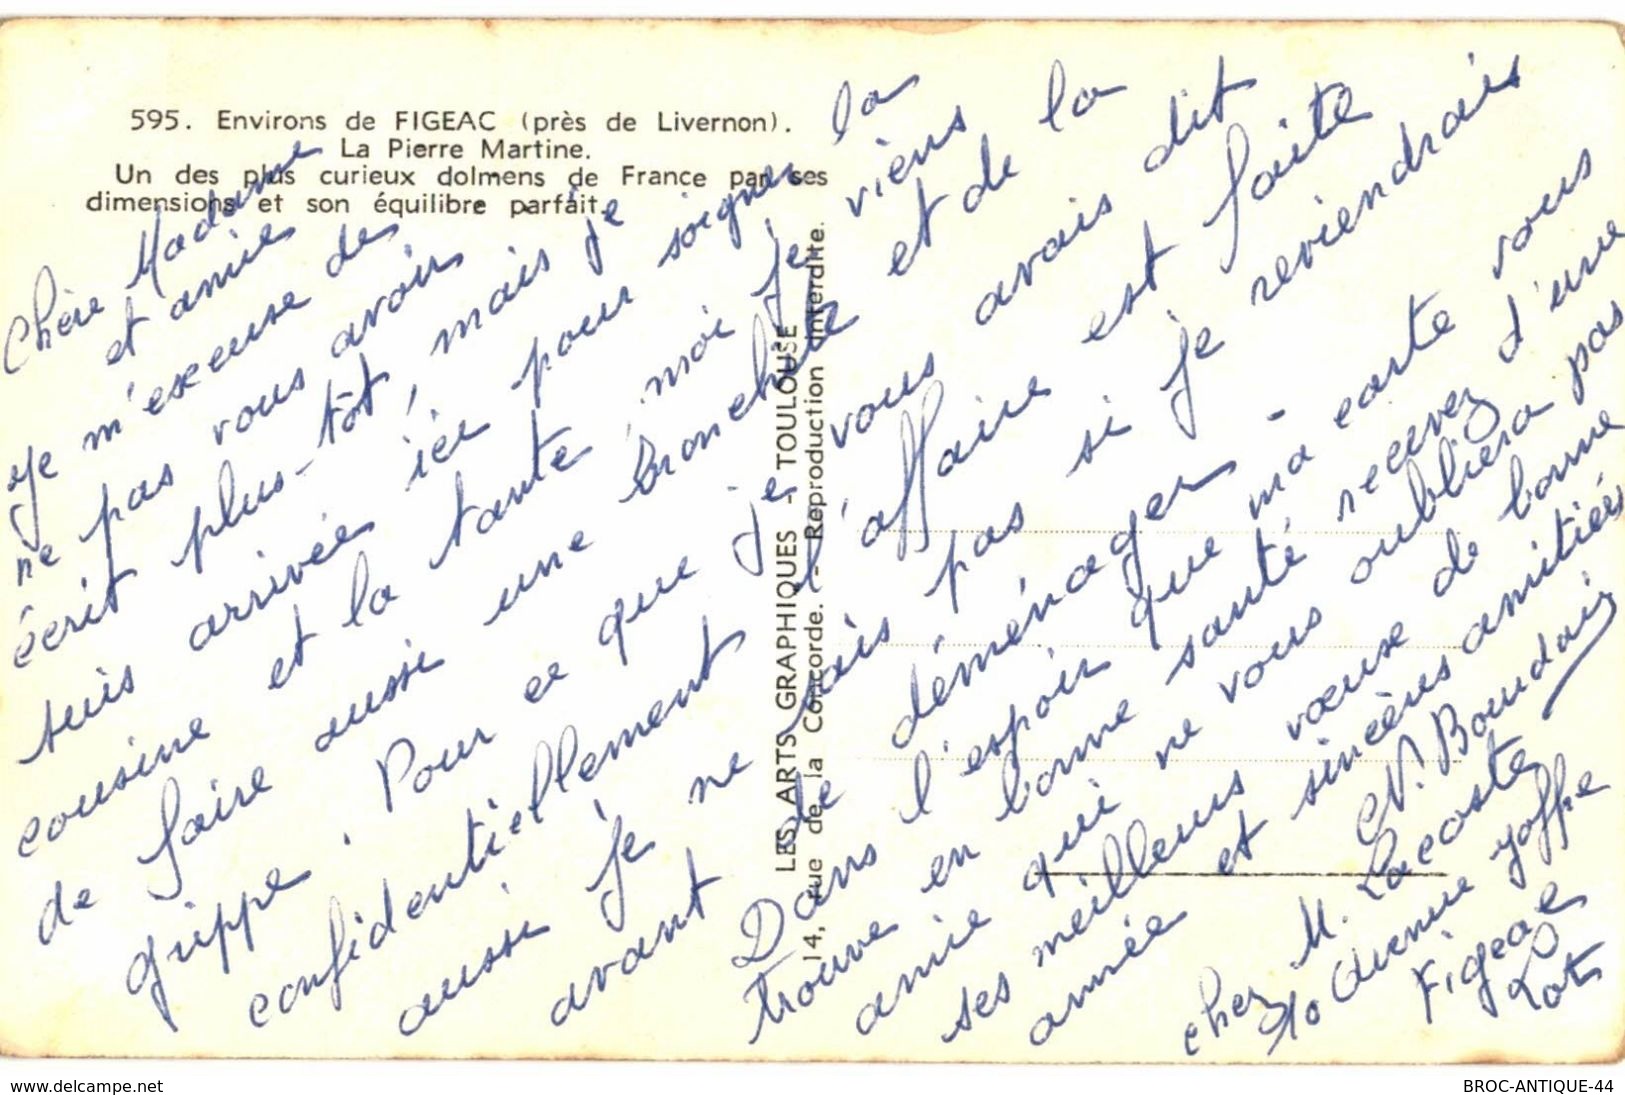 595. Environs de FIGEAC (près de Livernon).
La Pierre Martine.
Un des plus curieux dolmens de France par ses
dimensions et son équilibre parfait.
LES ARTS GRAPHIQUES - TOULOUSE
14, rue de la Concorde. - Reproduction interdite.
Chère Madame
et amie
Je m'excuse de
ne pas vous avoir
écrit plus-tôt, mais je
suis arrivée ici pour soigner la
cousine et la tante, moi je viens
de faire aussi une bronchite et de la
grippe. Pour ce que je vous avais dit
confidentiellement l'affaire est faite
aussi je ne sais pas si je reviendrais
avant de déménager -
Dans l'espoir que ma carte vous
trouve en bonne santé recevez d'une
amie qui ne vous oubliera pas
ses meilleurs vœux de bonne
année et sincères amitiés
N. Boudair
chez M. Lacoste
10 Avenue Joffre
Figeac
Lot
delcampe.net
BROC-ANTIQUE-44